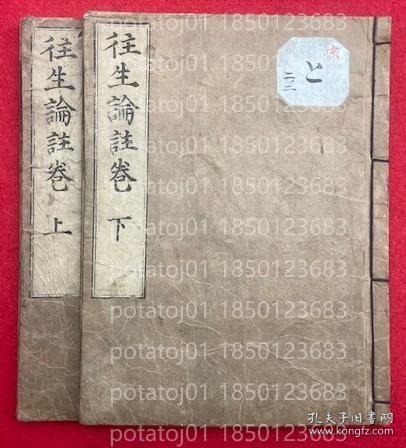 往生論註卷 上
往生論註卷 下
と
二二
potatoj01 1850123683
potatoj01 1850123683
potatoj01 1850123683
potatoj01 1850123683
potatoj01 1850123683
potatoj01 1850123683
potatoj01 1850123683
potatoj01 1850123683
potatoj01 1850123683
potatoj01 1850123683
孔夫子旧书网
kongfz.com